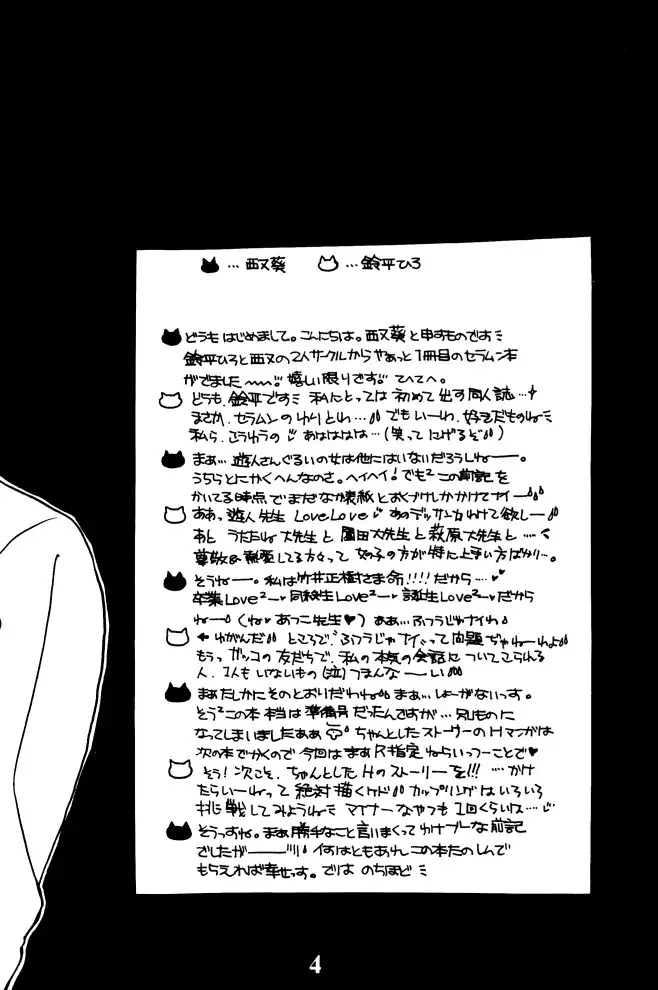 …西又葵 …鈴平ひろ
どうも はじめまして。こんにちは。西又葵と申すものですミ
鈴平ひろと西又の2人サークルからやぁっと1冊目のセラムン本
がでました〜〜!! 嬉しい限りです!! てへてへ。
どうも、鈴平ですミ 私にとっては 初めて 出す 同人誌…
まさか、セラムンのゆりとわ… でもいーわ、好きだものねミ
私ら、こうゆうの あはははは…(笑って にげるぞ)
まあ…遊人さんぐるいの女は他にはいないだろうしねー。
うちらとにかくへんなのさ。ヘイヘイ!でも²この前記を
かいてる時点でまだなか表紙とおくづけしかかけてナイー
ああっ遊人先生 LoveLove あのデッサン力わけて欲しー
あと うたたね大先生と 園田大先生と萩原大先生と…
尊敬&熱愛してる方々って 女の子の方が特に上手い方ばかり…。
そうねー。私は竹井正樹さま命!!!!だから…♥♥
卒業Love²ー♥同級生Love²ー♥誕生Love²ー♥だから
ねー(ね♥あっこ先生♥) ああ…ふつうじゃナイわ
←ゆがんだ ところで、ふつうじゃナイって 問題 ぢゃねーわよ
もうっ ガッコの友だちで、私の本気の会話に ついてこられる
人、1人もいないもの(泣)つまんなーい
まあたしかにそのとおりだわね まあ…しょーがないっす。
そう²この本 本当は 準備号だったんですが…別ものに
なってしまいましたああ ちゃんとしたストーリーのHマンガは
次の本でかくので 今回は まあR指定ねらいっつーことで♥
そう!次こそ、ちゃんとしたHのストーリーを!!!…かけ
たらいーねって 絶対 描くケド カップリングはいろいろ
挑戦してみようねミ マイナーなやつも 1回くらいは…
そうっすね。まあ 勝手なこと言いまくってわけプーな前記
でしたがー 何はともあれこの本たのしんで
もらえれば幸せっす。では のちほどミ
4